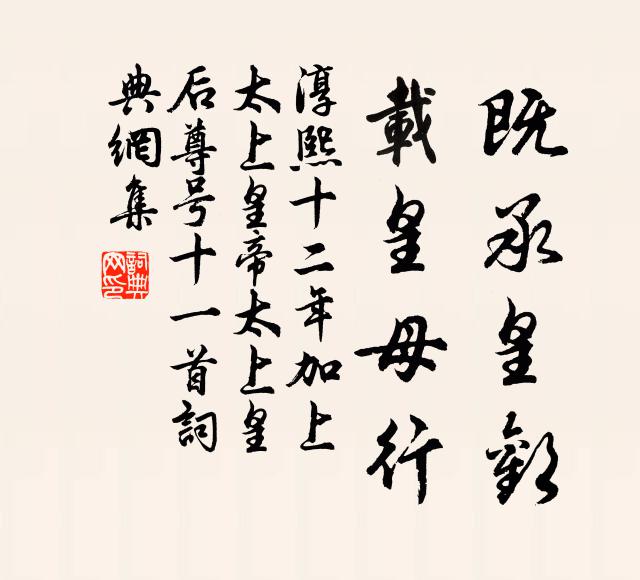 既承皇歡
載皇母行
淳熙十二年加上
太上皇帝太上皇
后尊号十一首詞
典網集
詞典
网印